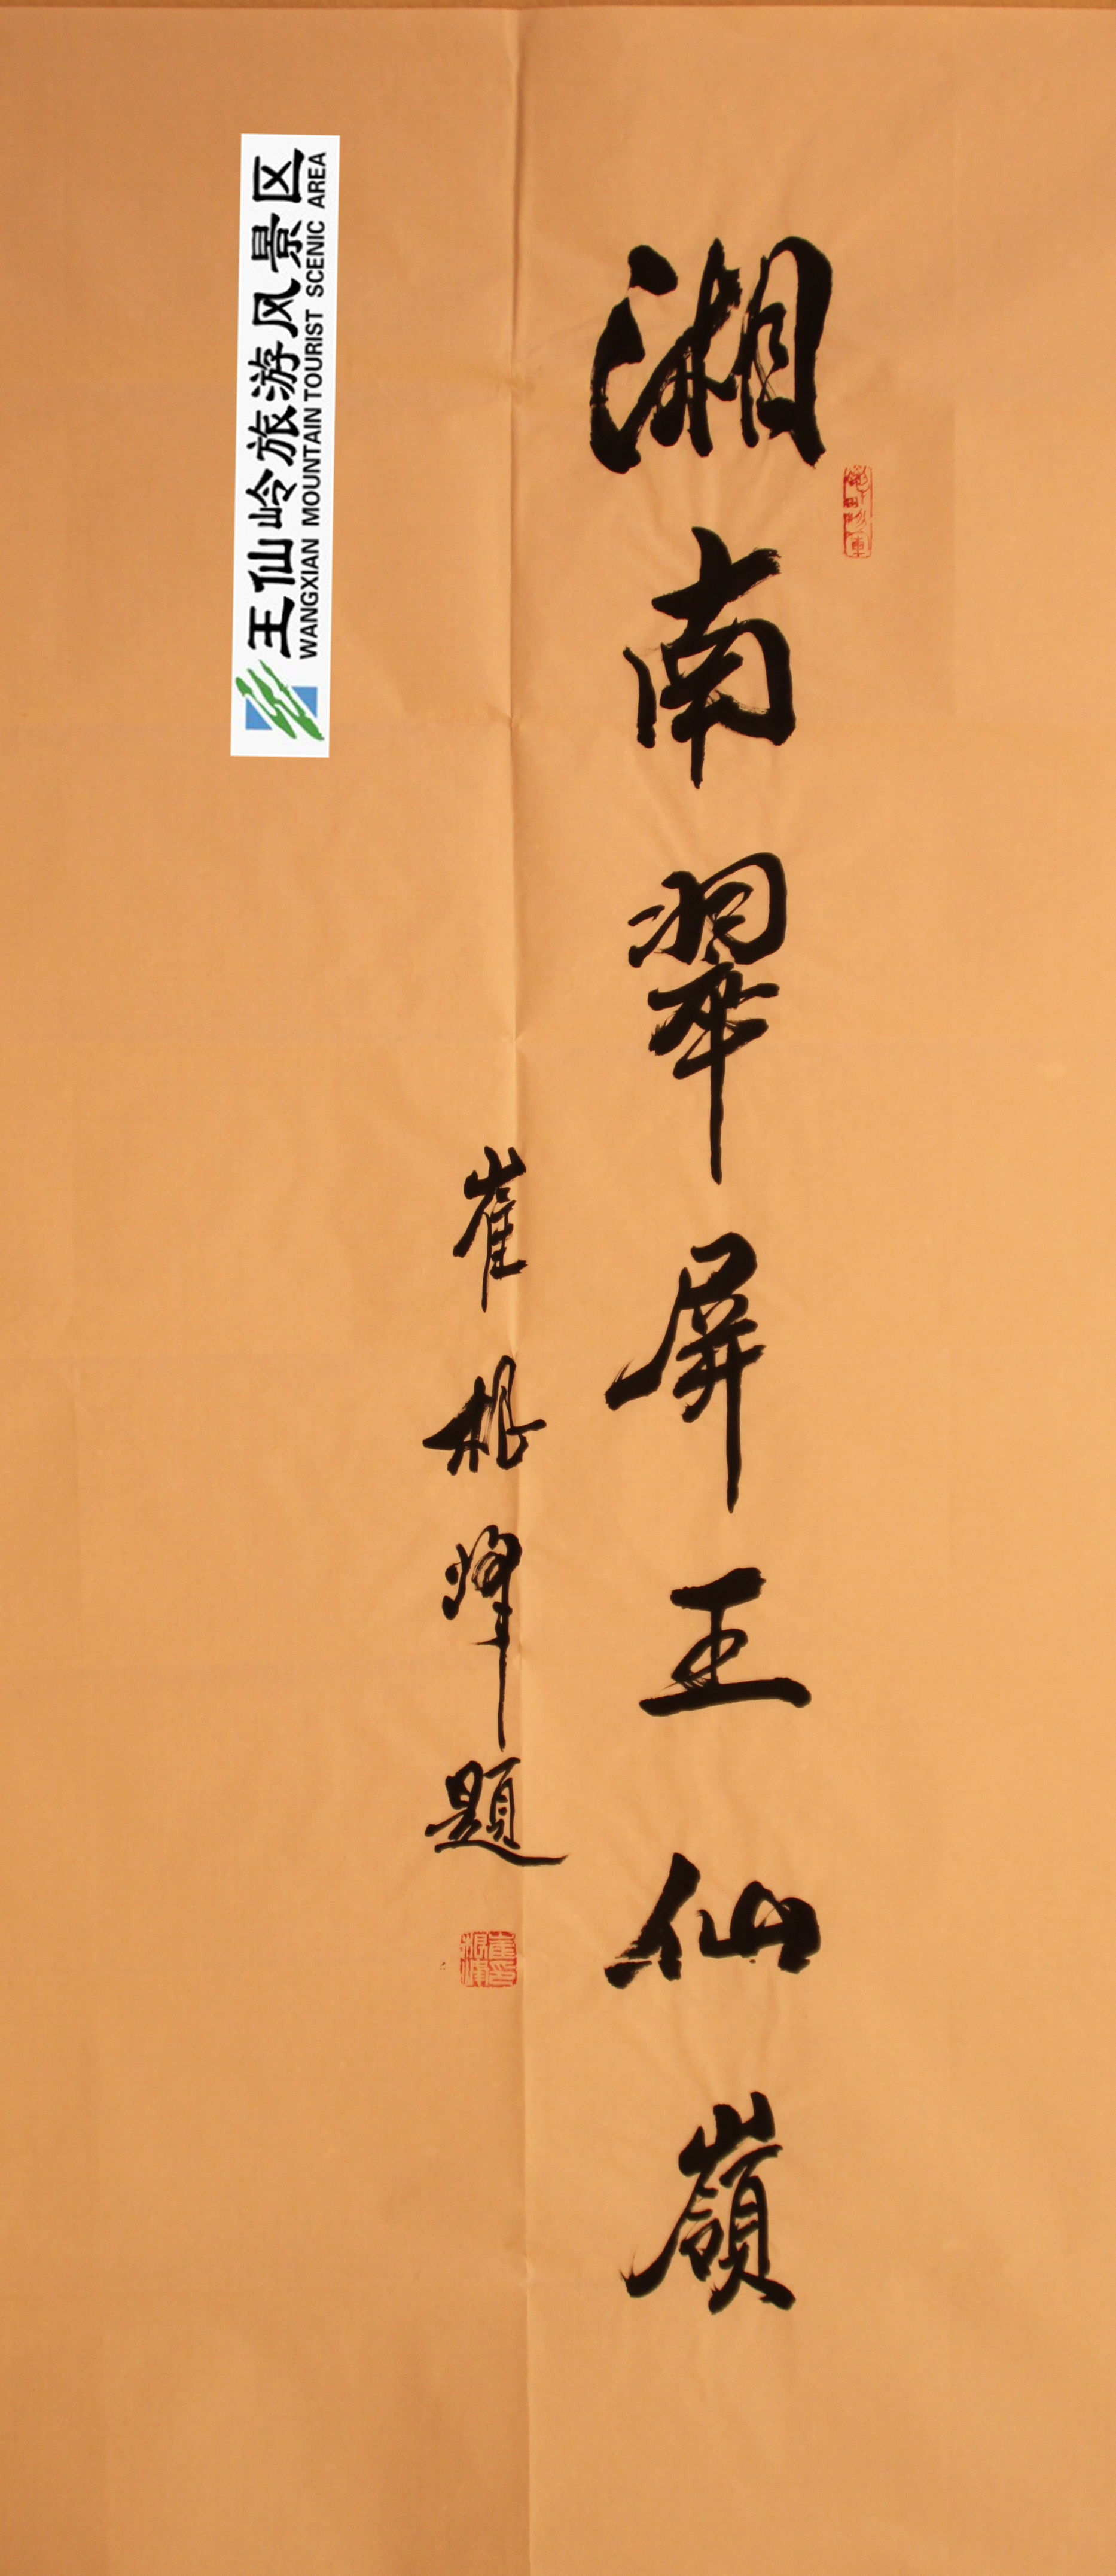 湘南翠屏王仙嶺
崔根烽題
王仙岭旅游风景区
WANGXIAN MOUNTAIN TOURIST SCENIC AREA